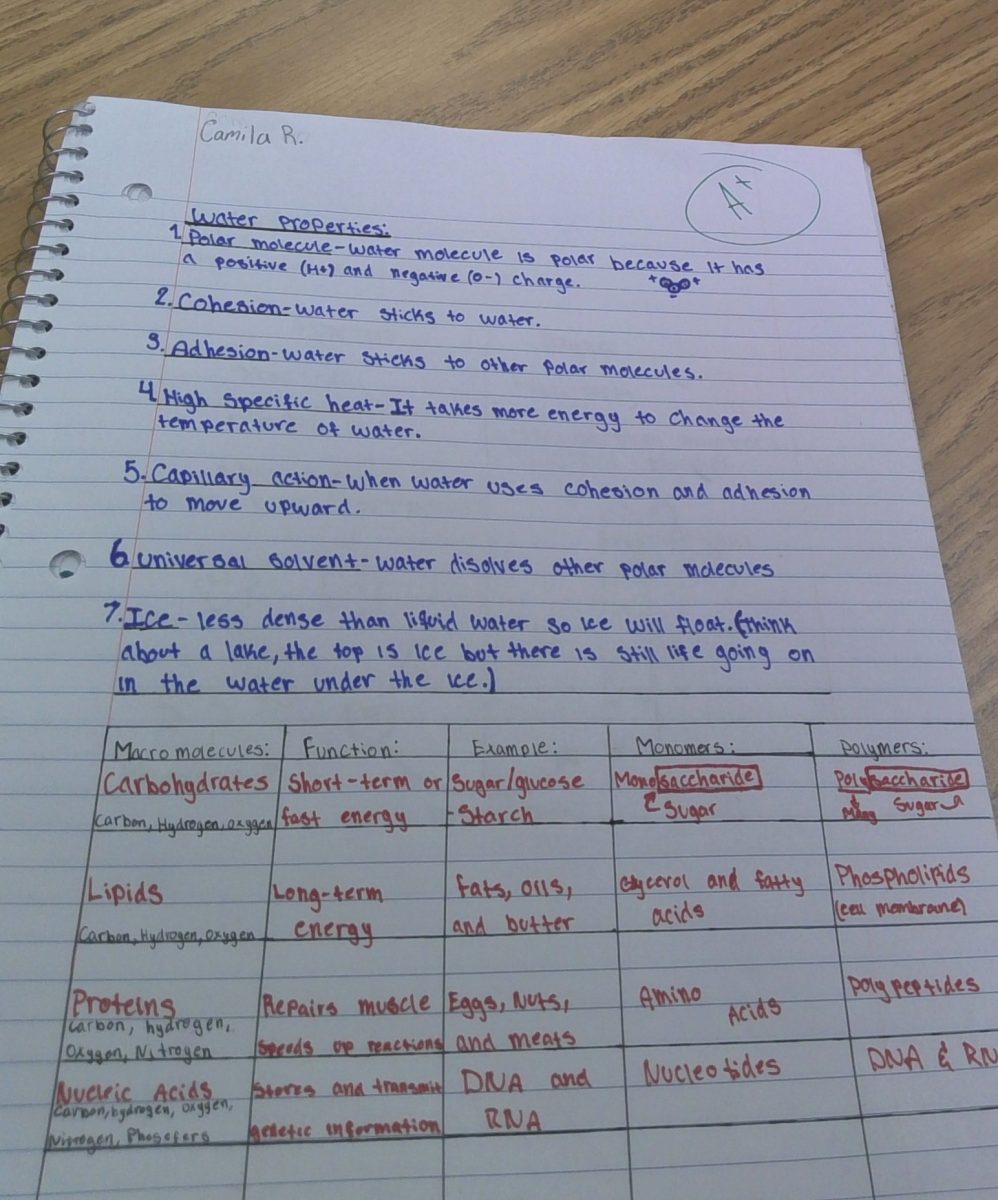 Camila R.
A+
Water Properties:
1. Polar molecule-water molecule is polar because it has
a positive (H+) and negative (O-) charge.
+ +
2. Cohesion-water sticks to water.
3. Adhesion-water sticks to other polar molecules.
4. High specific heat-It takes more energy to change the
temperature of water.
5. Capillary action-when water uses cohesion and adhesion
to move upward.
6. universal solvent-water disolves other polar molecules
7. Ice-less dense than liquid water so ice will float. (think
about a lake, the top is ice but there is still life going on
in the water under the ice.)
Macromolecules: Function: Example: Monomers: Polymers:
Carbohydrates Short-term or Sugar/glucose Monosaccharide Polysaccharide
Carbon, Hydrogen, oxygen fast energy -Starch Sugar Many Sugar
Lipids Long-term Fats, oils, Glycerol and fatty Phospholipids
Carbon, Hydrogen, Oxygen energy and butter acids (cell membrane)
Proteins Repairs muscle Eggs, Nuts, Amino Polypeptides
Carbon, hydrogen, Acids
Oxygen, Nitrogen Speeds up reactions and meats
Nucleic Acids Stores and transmit DNA and Nucleotides DNA & RN
Carbon, hydrogen, Oxygen,
Nitrogen, Phosofers genetic information RNA